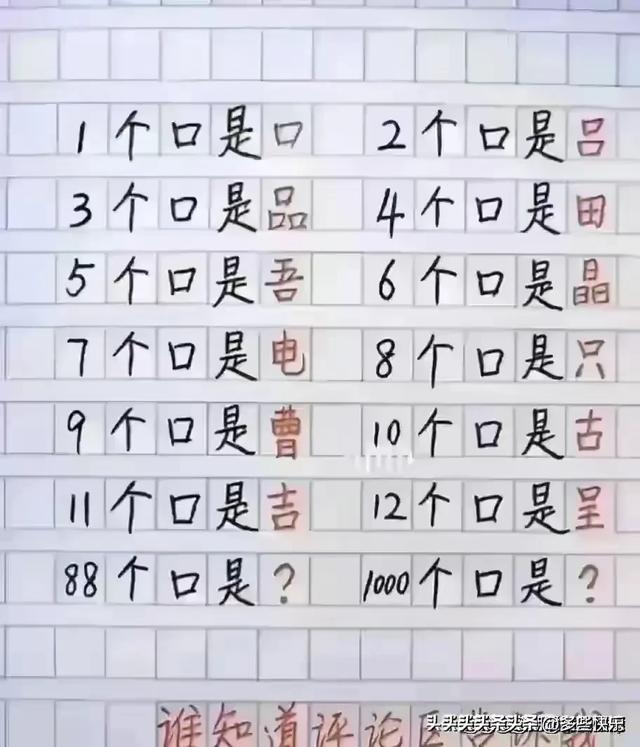 1个口是口 2个口是吕
3个口是品 4个口是田
5个口是吾 6个口是晶
7个口是电 8个口是只
9个口是曹 10个口是古
11个口是吉 12个口是呈
88个口是? 1000个口是?
谁知道评论区告诉我
@多些快乐